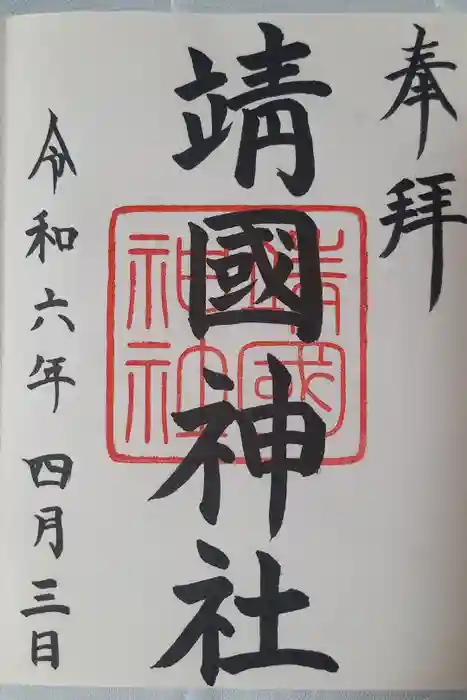 奉拝
靖國神社
靖國
神社
令和六年 四月三日